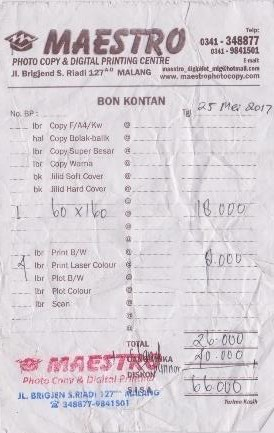 MAESTRO
PHOTO COPY & DIGITAL PRINTING CENTRE
Jl. Brigjend S. Riadi 127 MALANG
Telp:
0341 - 348877
0341 - 9841501
E-mail:
www.maestrophotocopy.com
BON KONTAN
No. BP :
Tgl 25 Mei 2017
lbr Copy F/A4/Kw @
hal Copy Bolak-balik @
lbr Copy Super Besar @
lbr Copy Warna @
bk Jilid Soft Cover @
bk Jilid Hard Cover @
1 60 x 160 18.000
lbr Print B/W @
lbr Print Laser Colour @ 8.000
lbr Plot B/W @
lbr Plot Colour @
lbr Scan @
TOTAL 26.000
20.000
DISKON
SISA 66.000
Terima Kasih
MAESTRO
Photo Copy & Digital Printing
JL. BRIGJEN S.RIADI 127 MALANG
348877-9841501